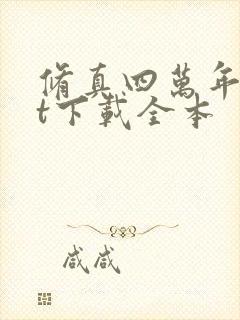 脩真四萬年
t下載全本
咸咸